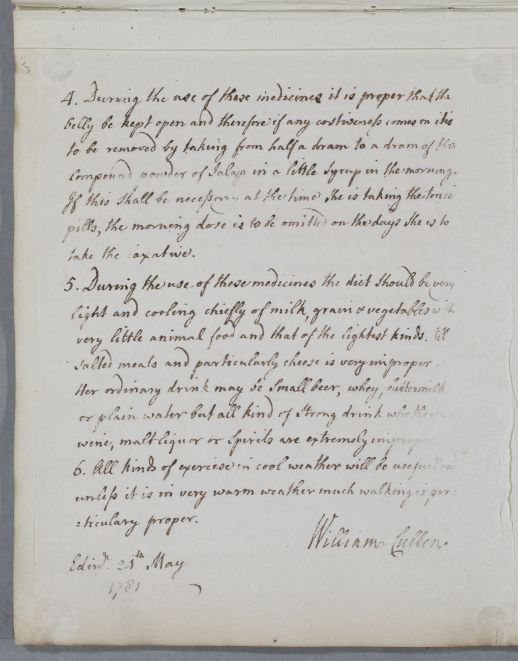 4. During the use of these medicines it is proper that the
belly be kept open and therefore if any costiveness comes on it is
to be removed by taking from half a dram to a dram of the
Compound powder of Jalap in a little Syrup in the morning.
If this shall be necessary at the time She is taking the tonic
pills, the morning dose is to be omitted on the days She is to
take the laxative.
5. During the use of these medicines the diet Should be very
light and cooling chiefly of milk, grain & vegetables with
very little animal food and that of the lightest kinds. All
Salted meats and particularly cheese is very improper.
Her ordinary drink may be Small beer, whey, buttermilk
or plain water but all kind of Strong drink whether
wine, malt liquor or Spirits are extremely improper
6. All kinds of exercise in cool weather will be usefull and
unless it is in very warm weather much walking is par:
:ticulary proper.
William Cullen
Edinr. 21th May
1781